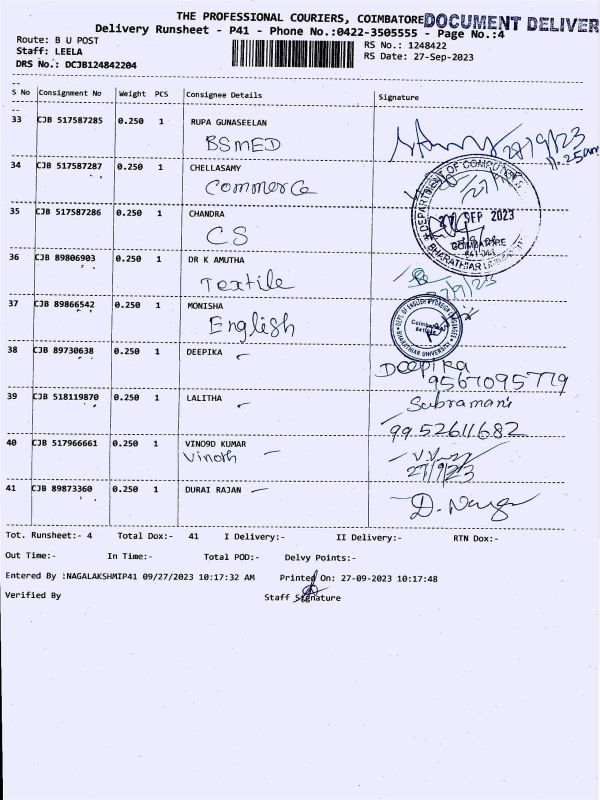 THE PROFESSIONAL COURIERS, COIMBATORE DOCUMENT DELIVER
Delivery Runsheet - P41 - Phone No.:0422-3505555 - Page No.:4
Route: B U POST RS No.: 1248422
Staff: LEELA RS Date: 27-Sep-2023
DRS No.: DCJB124842204
S No Consignment No Weight PCS Consignee Details Signature
33 CJB 517587285 0.250 1 RUPA GUNASEELAN
BSMED 27/9/23
11.25am
34 CJB 517587287 0.250 1 CHELLASAMY
Commerce
DEPARTMENT OF COMPUTER
35 CJB 517587286 0.250 1 CHANDRA
27 SEP 2023
CS
COIMBATORE
641 046
BHARATHIAR UNIVERSITY
36 CJB 89806903 0.250 1 DR K AMUTHA
Textile
37 CJB 89866542 0.250 1 MONISHA
English
DEPT. OF ENGLISH & FOREIGN LANGUAGES
BHARATHIAR UNIVERSITY
38 CJB 89730638 0.250 1 DEEPIKA
Deepika
9567095779
39 CJB 518119870 0.250 1 LALITHA Subramani
9952611682
40 CJB 517966661 0.250 1 VINO9D KUMAR
Vinoth
27/9/23
41 CJB 89873360 0.250 1 DURAI RAJAN
Tot. Runsheet:- 4 Total Dox:- 41 I Delivery:- II Delivery:- RTN Dox:-
Out Time:- In Time:- Total POD:- Delvy Points:-
Entered By :NAGALAKSHMIP41 09/27/2023 10:17:32 AM Printed On: 27-09-2023 10:17:48
Verified By Staff Signature